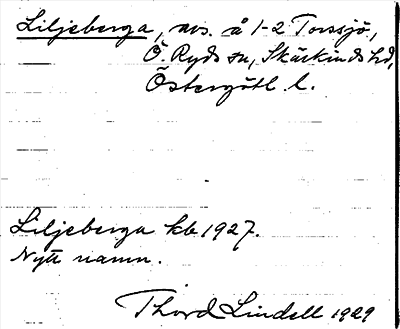 Liljeberga, avs. å 1-2 Torssjö,
Ö. Ryds sn, Skärkinds hd,
Östergötl. l.
Liljeberga kb 1927.
Nytt namn.
Thord Lindell 1929